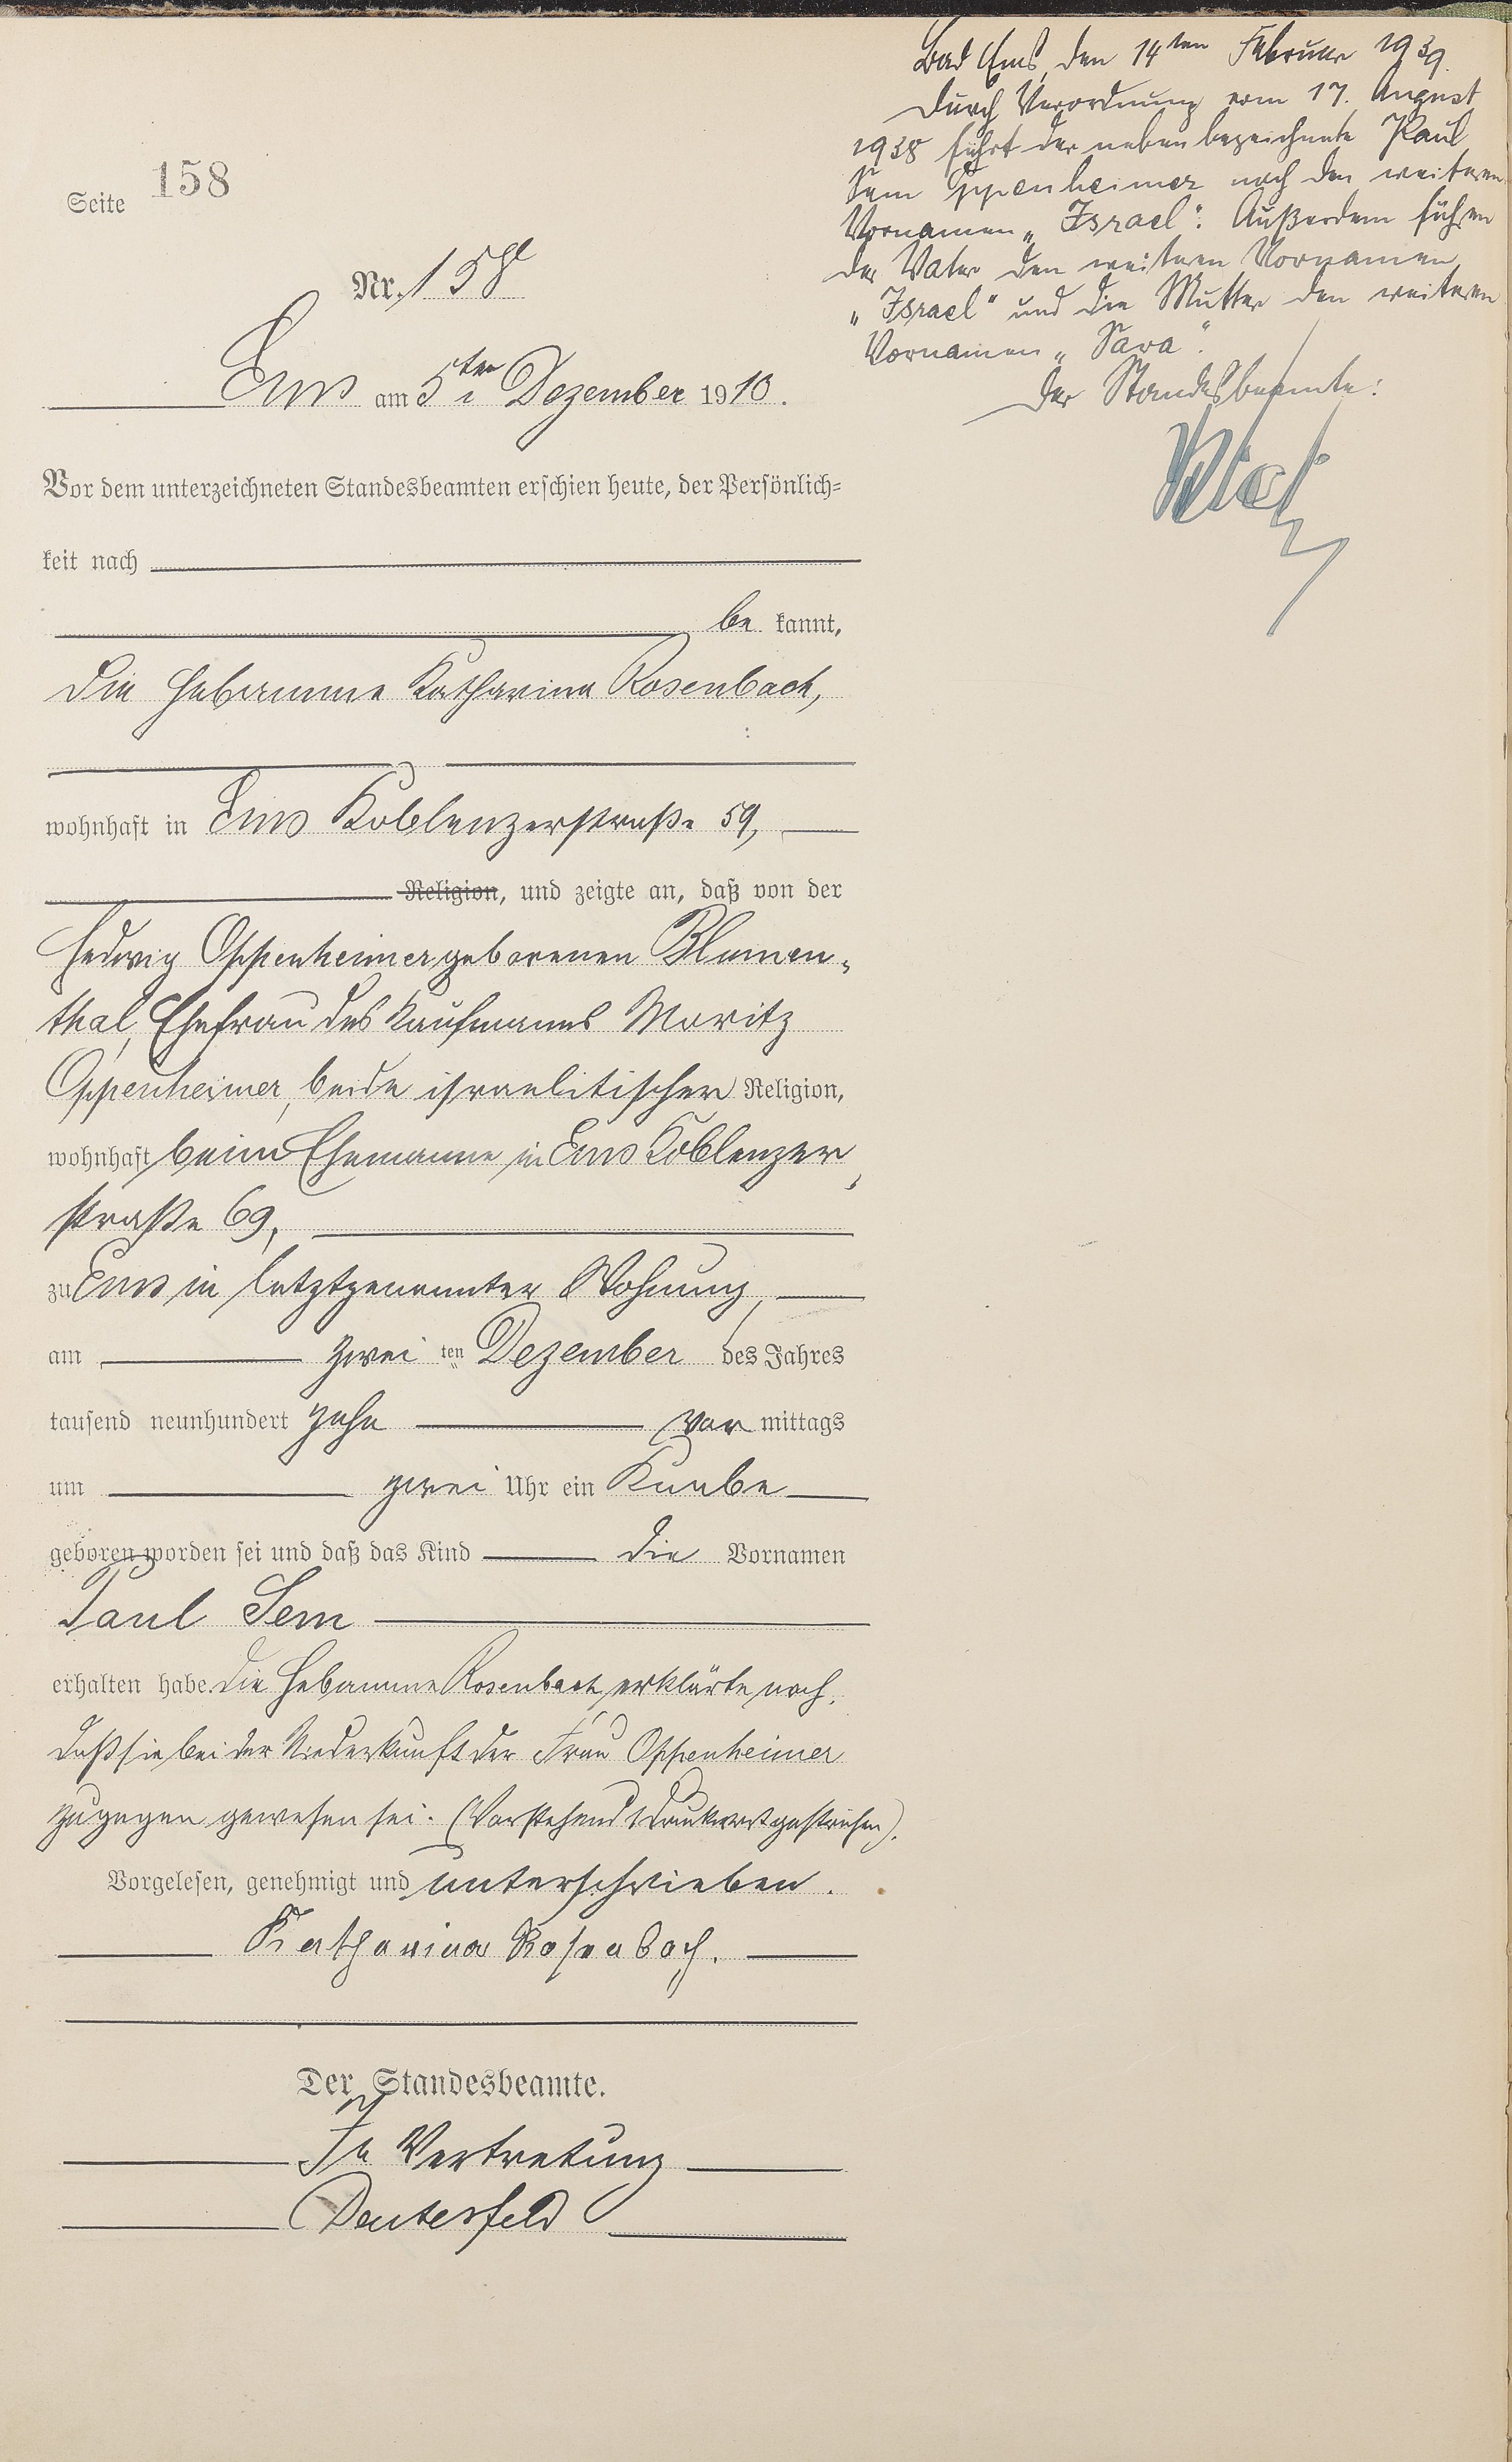 Seite 158
Nr. 158
Ems am 5ten Dezember 1910.
Vor dem unterzeichneten Standesbeamten erschien heute, der Persönlich-
keit nach
be kannt,
die Hebamme Katharina Rosenbach,
wohnhaft in Ems Koblenzerstraße 59,
Religion, und zeigte an, daß von der
Hedwig Oppenheimer geborenen Blumen-
thal, Ehefrau des Kaufmanns Moritz
Oppenheimer, beide israelitischer Religion,
wohnhaft beim Ehemanne in Ems Koblenzer-
straße 69,
zu Ems in letztgenannter Wohnung,
am zwei ten Dezember des Jahres
tausend neunhundert zehn vor mittags
um zwei Uhr ein Knabe
geboren worden sei und daß das Kind die Vornamen
Paul Sem
erhalten habe. Die Hebamme Rosenbach erklärte noch,
daß sie bei der Niederkunft der Frau Oppenheimer
zugegen gewesen sei. (Vorstehend 1 Druckwort gestrichen).
Vorgelesen, genehmigt und unterschrieben.
Katharina Rosenbach.
Der Standesbeamte.
In Vertretung
Bad Ems, den 14ten Februar 1939.
Durch Verordnung vom 17. August
1938 führt der nebenbezeichnete Paul
Sem Oppenheimer noch den weiteren
Vornamen „Israel". Außerdem führen
der Vater den weiteren Vornamen
„Israel" und die Mutter den weiteren
Vornamen „Sara".
Der Standesbeamte: